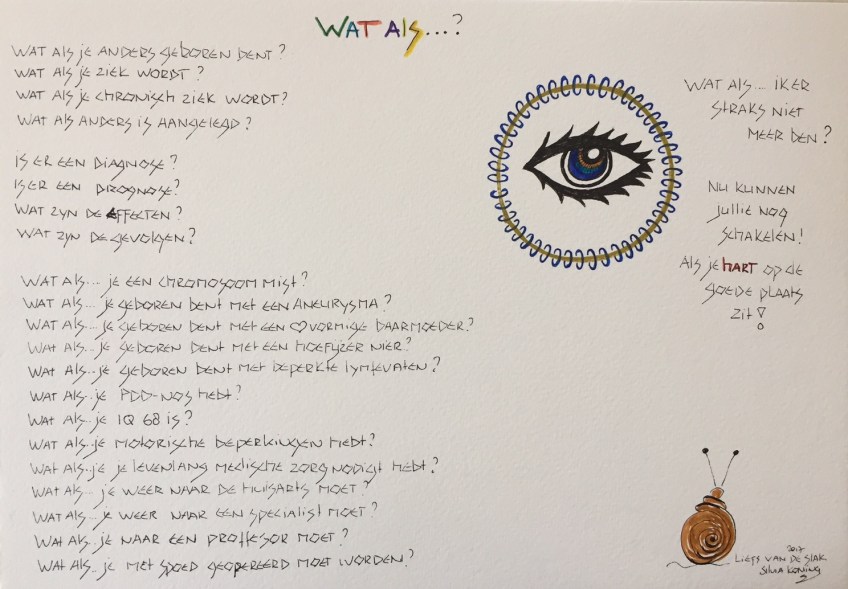 WAT ALS...?
WAT ALS JE ANDERS GEBOREN BENT?
WAT ALS JE ZIEK WORDT?
WAT ALS JE CHRONISCH ZIEK WORDT?
WAT ALS ANDERS IS AANGELEGD?
IS ER EEN DIAGNOSE?
IS ER EEN PROGNOSE?
WAT ZYN DE EFFECTEN?
WAT ZYN DE GEVOLGEN?
WAT ALS... JE EEN CHROMOSOOM MIST?
WAT ALS... JE GEBOREN BENT MET EEN ANEURYSMA?
WAT ALS... JE GEBOREN BENT MET EEN ♡VORMIGE BAARMOEDER?
WAT ALS... JE GEBOREN BENT MET EEN HOEFYZER NIER?
WAT ALS... JE GEBOREN BENT MET BEPERKTE LYMFEVATEN?
WAT ALS... JE PDD-NOS HEBT?
WAT ALS... JE IQ 68 IS?
WAT ALS... JE MOTORISCHE BEPERKINGEN HEBT?
WAT ALS... JE JE LEVENLANG MEDISCHE ZORG NODIGT HEBT?
WAT ALS... JE WEER NAAR DE HUISARTS MOET?
WAT ALS... JE WEER NAAR EEN SPECIALIST MOET?
WAT ALS... JE NAAR EEN PROFFESOR MOET?
WAT ALS... JE MET SPOED GEOPEREERD MOET WORDEN?
WAT ALS... IK ER
STRAKS NIET
MEER BEN?
NU KUNNEN
JULLIE NOG
SCHAKELEN!
ALS JE HART OP DE
GOEDE PLAATS
ZIT!
2017
LIEFS VAN DE SLAK
SILVIA KONING